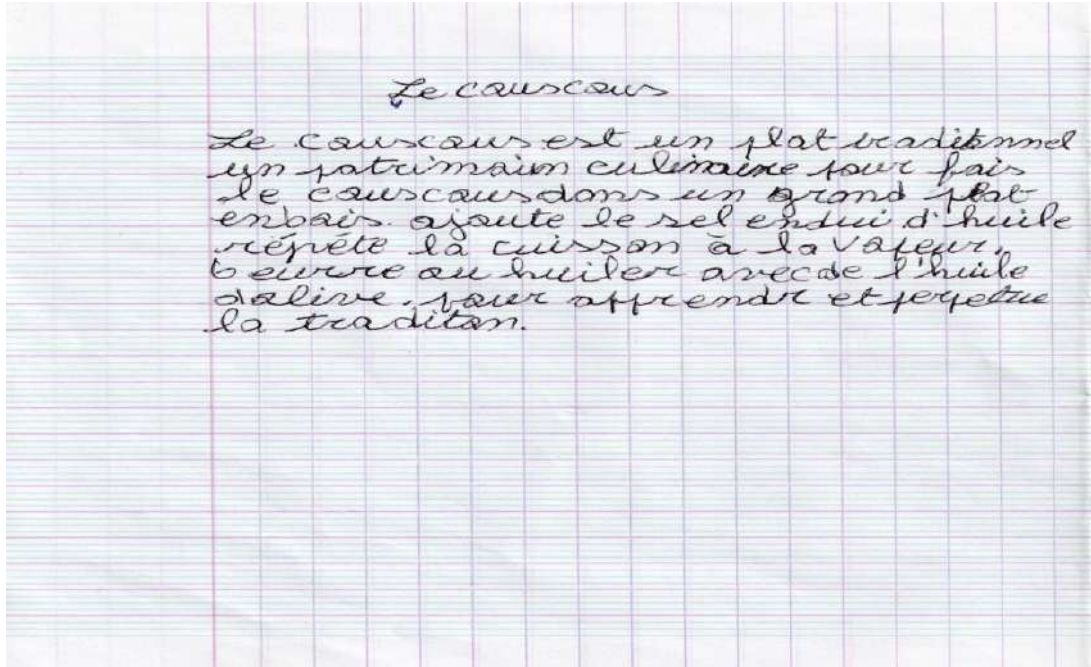 Le couscous
Le couscous est un plat traditionnel
un patrimoin culinaire pour fais
le couscous dans un grand plat
enbois. ajoute le sel endui d'huile
répéte la cuisson à la vapeur,
beurre ou huiler avec de l'huile
dolive. pour apprendr et perpetue
la traditon.